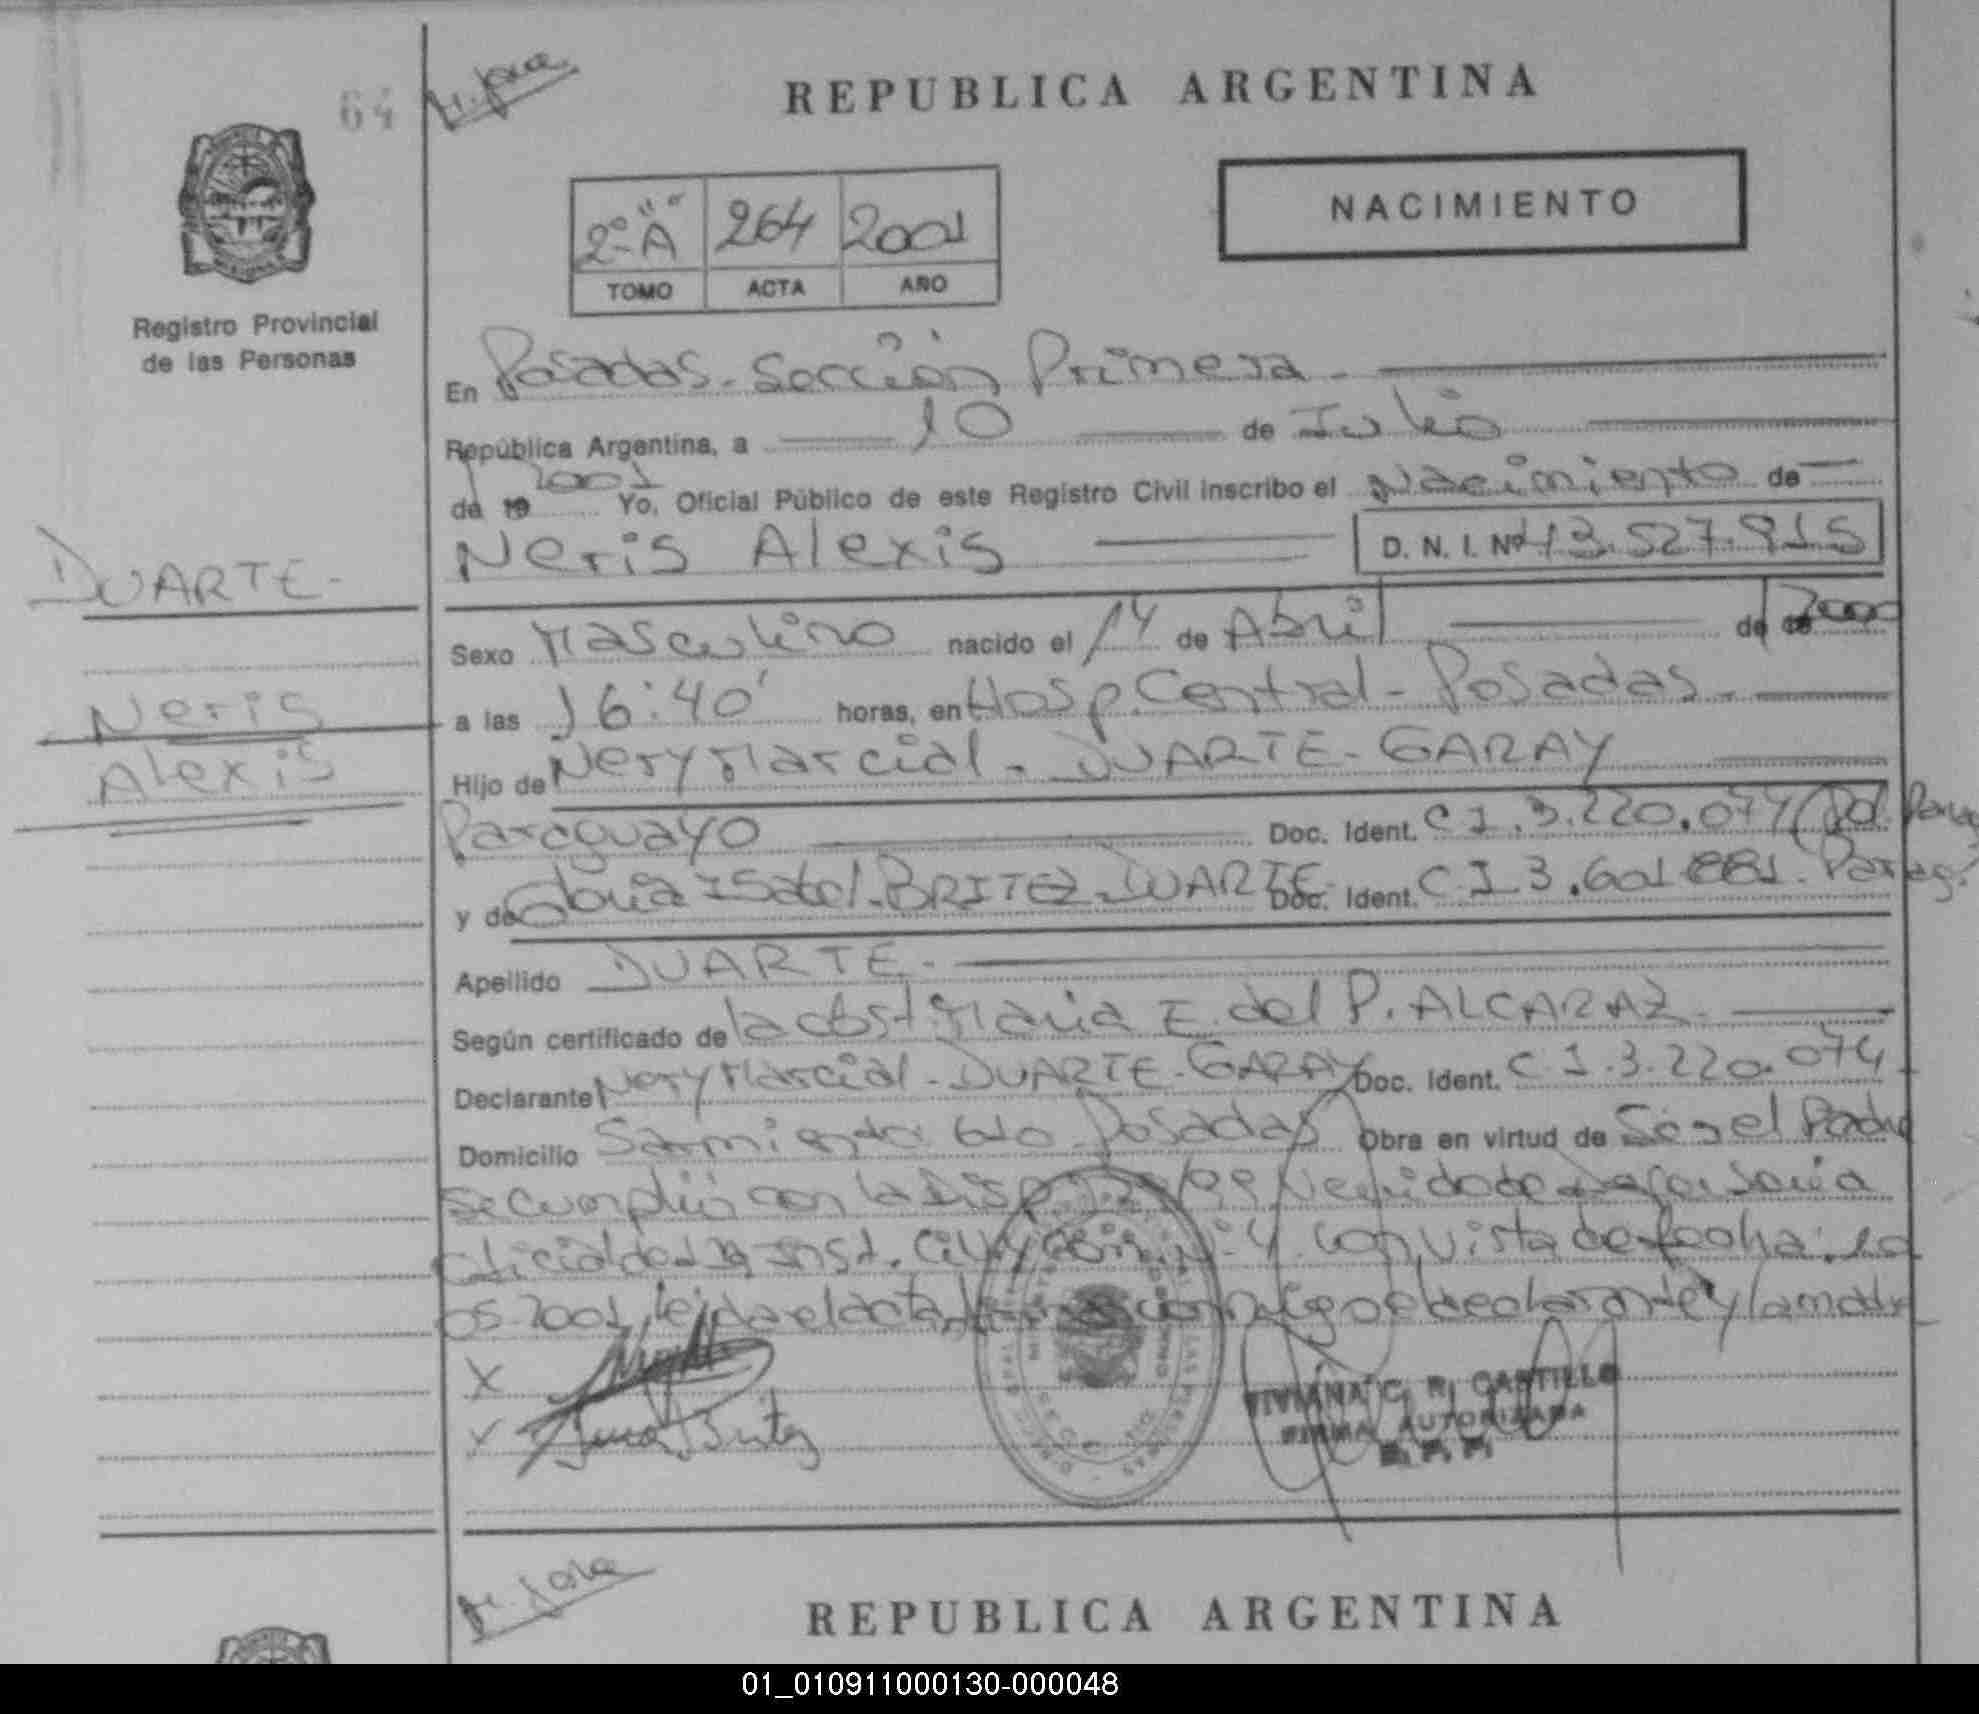 64
M. Jose.
REPUBLICA ARGENTINA
2º "A" 264 2001
TOMO ACTA AÑO
NACIMIENTO
Registro Provincial
de las Personas
En Posadas - Sección Primera -
República Argentina, a 10 de Julio
de 19 2001 Yo, Oficial Público de este Registro Civil inscribo el Nacimiento de
Neris Alexis D. N. I. Nº 43.527.915
DUARTE -
Neris
Alexis
Sexo Masculino nacido el 14 de Abril de 2000
a las 16:40' horas, en Hosp. Central - Posadas -
Hijo de Nery Marcial - DUARTE - GARAY
Paraguayo Doc. Ident. C I. 3.220.074 (Pol. Parag
y de Gloria Isabel - BRITEZ - DUARTE - Doc. Ident. C.I 3.601.881. Parag.
Apellido DUARTE -
Según certificado de la obst. Maria E. del P. ALCARAZ -
Declarante Nery Marcial - DUARTE - GARAY Doc. Ident. C.I. 3.220.074
Domicilio Sarmiento Posadas Obra en virtud de Ser el Padre
se cumplió con la Disp. Defensoria
Oficial de Inst. Civil Nº 4 con vista de fecha: 10
05-2001, leida el acta conmigo el declarante y la madre
X
X Britez
VIVIANA C. R. CASTILLO
FIRMA AUTORIZADA
R. P. P.
M. Jose
REPUBLICA ARGENTINA
01_010911000130-000048